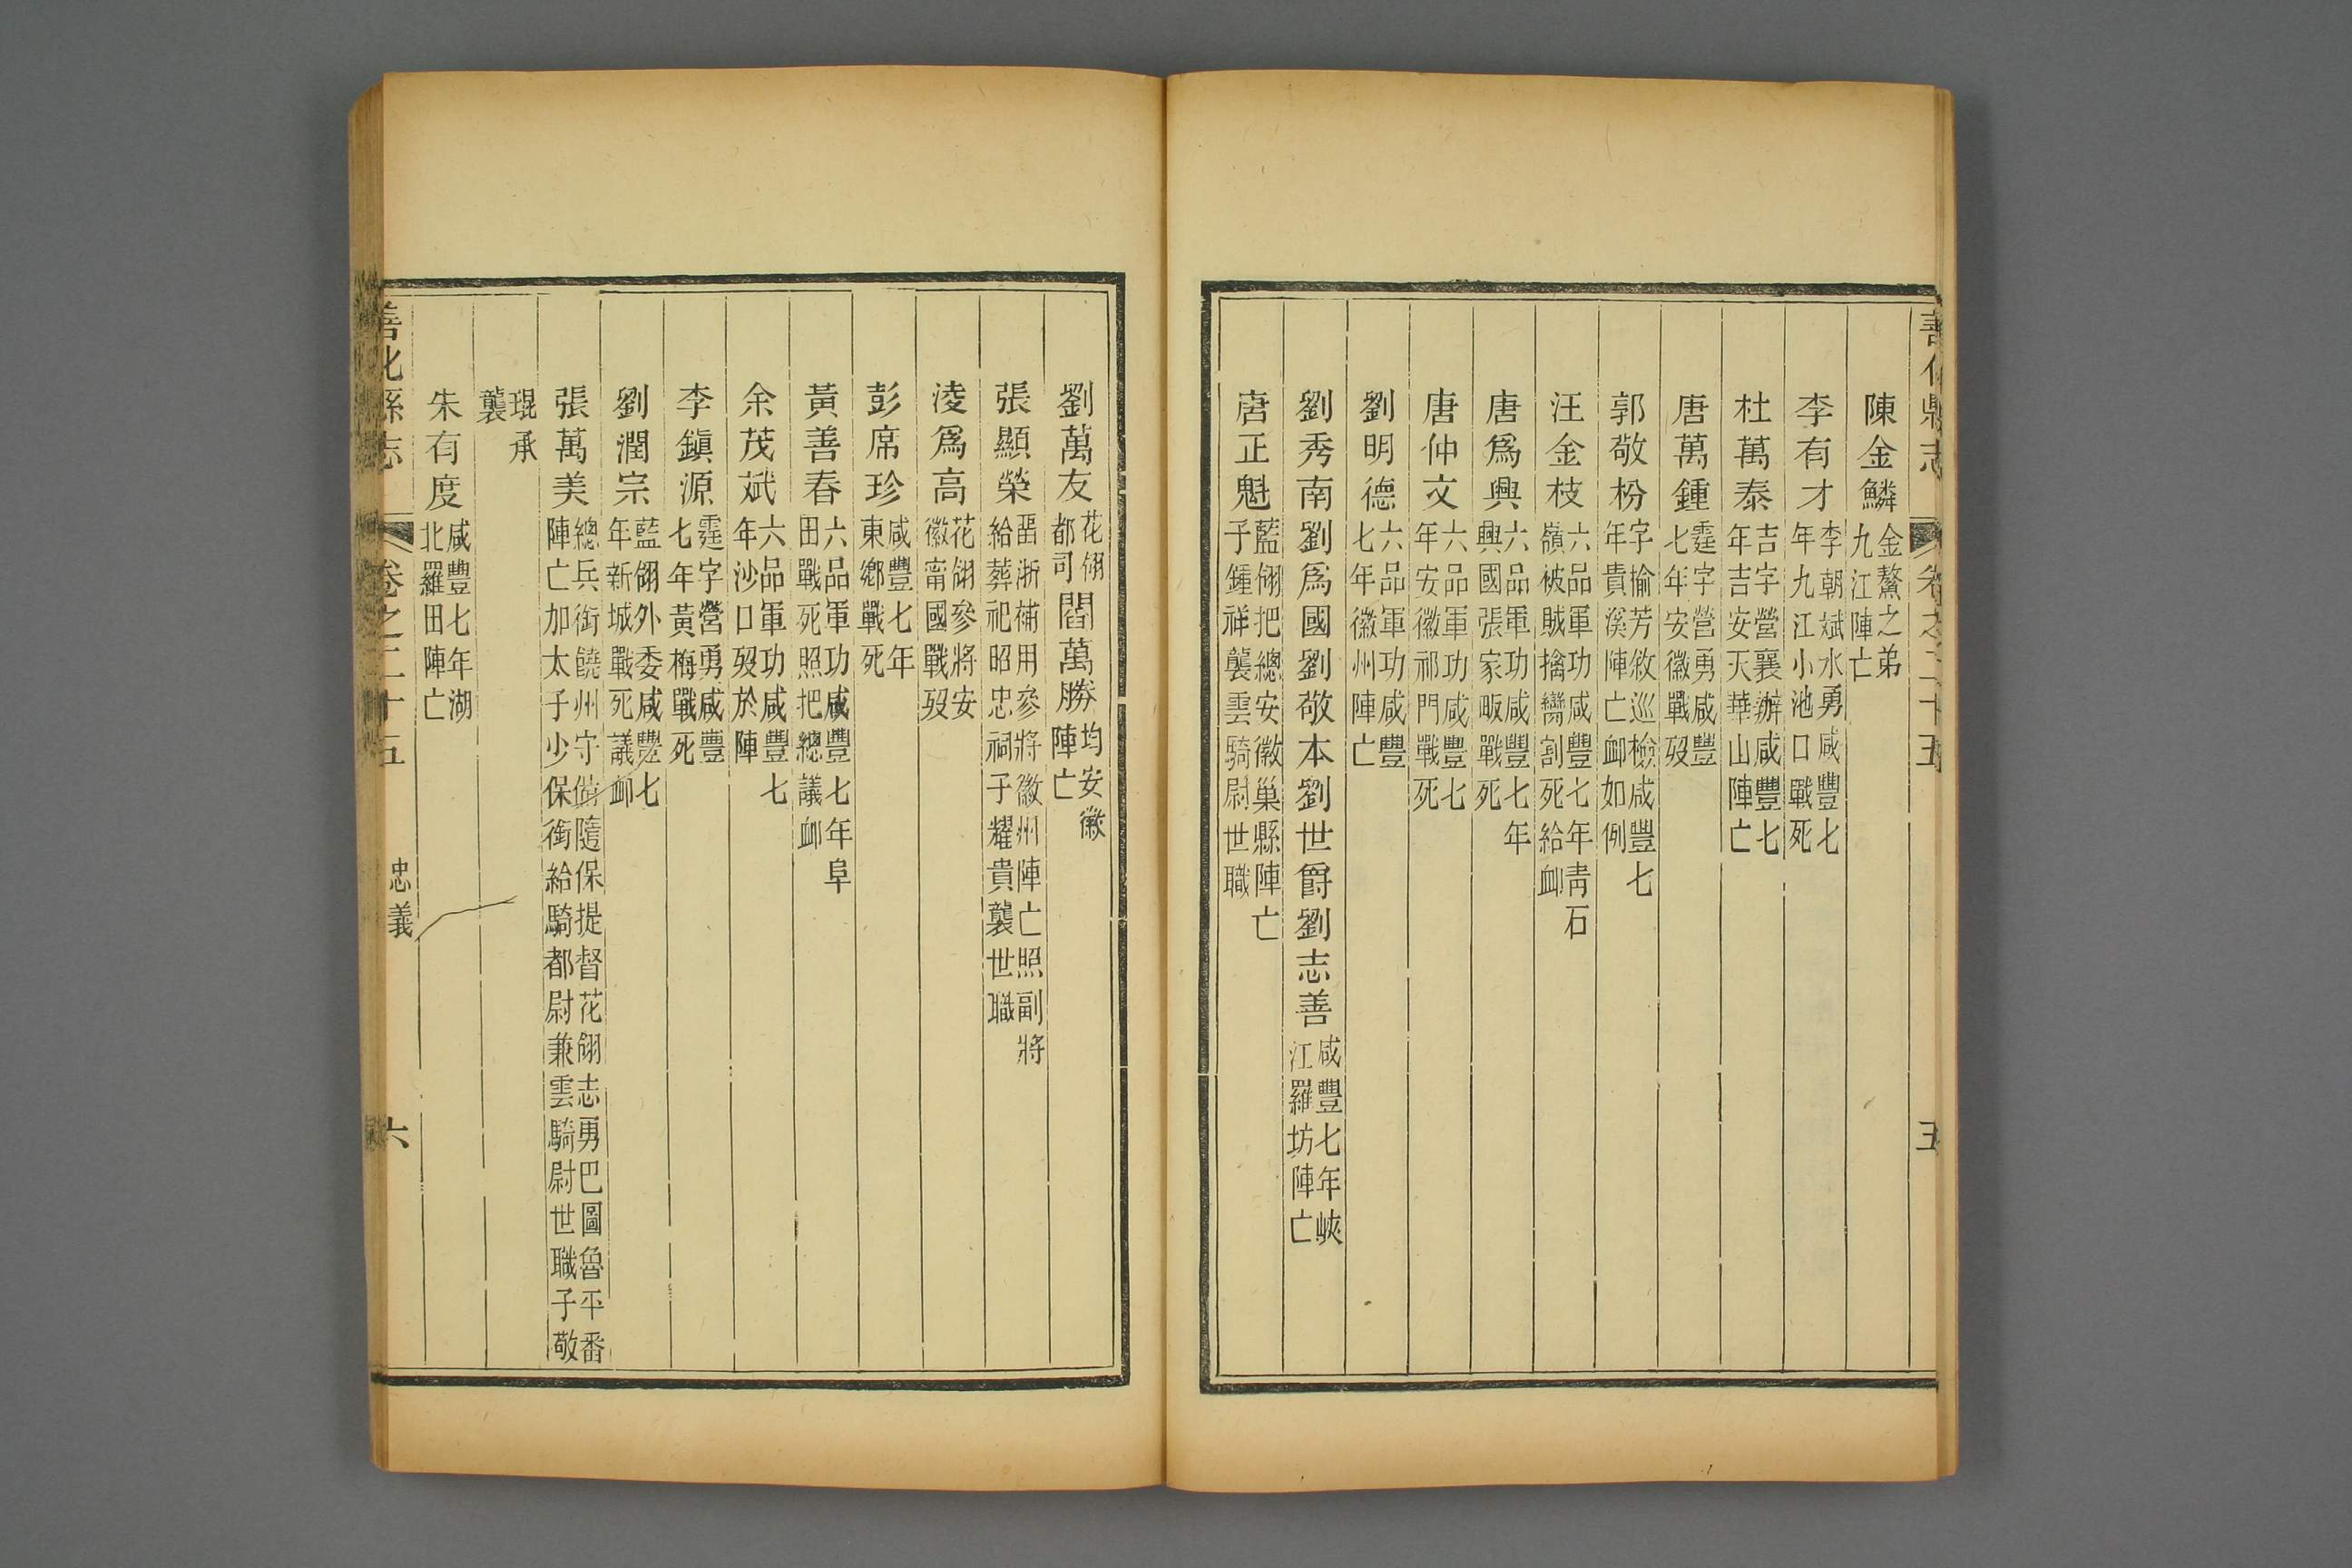 善化縣志 卷之二十五 五
陳金鱗 金鰲之弟九江陣亡
李有才 李朝斌水勇咸豐七年九江小池口戰死
杜萬泰 吉字營襄辦咸豐七年吉安天華山陣亡
唐萬鍾 霆字營勇咸豐七年安徽戰歿
郭敬枌 字掄芳敘巡檢咸豐七年貴溪陣亡卹如例
汪金枝 六品軍功咸豐七年靑石嶺被賊擒臠割死給卹
唐爲興 六品軍功咸豐七年興國張家畈戰死
唐仲文 六品軍功咸豐七年安徽祁門戰死
劉明德 六品軍功咸豐七年徽州陣亡
劉秀南劉爲國劉敬本劉世爵劉志善 咸豐七年峽江羅坊陣亡
唐正魁 藍翎把總安徽巢縣陣亡子鍾祥襲雲騎尉世職
劉萬友 花翎都司 閻萬勝 均安徽陣亡
張顯榮 留浙補用參將徽州陣亡照副將給葬祀昭忠祠子耀貴襲世職
淩爲高 花翎參將安徽甯國戰歿
彭席珍 咸豐七年東鄉戰死
黃善春 六品軍功咸豐七年阜田戰死照把總議卹
余茂斌 六品軍功咸豐七年沙口歿於陣
李鎭源 霆字營勇咸豐七年黃梅戰死
劉潤宗 藍翎外委咸豐七年新城戰死議卹
張萬美 總兵銜饒州守備隨保提督花翎志勇巴圖魯平番陣亡加太子少保銜給騎都尉兼雲騎尉世職子敬
琨承襲
朱有度 咸豐七年湖北羅田陣亡
善化縣志 卷之二十五 忠義 六